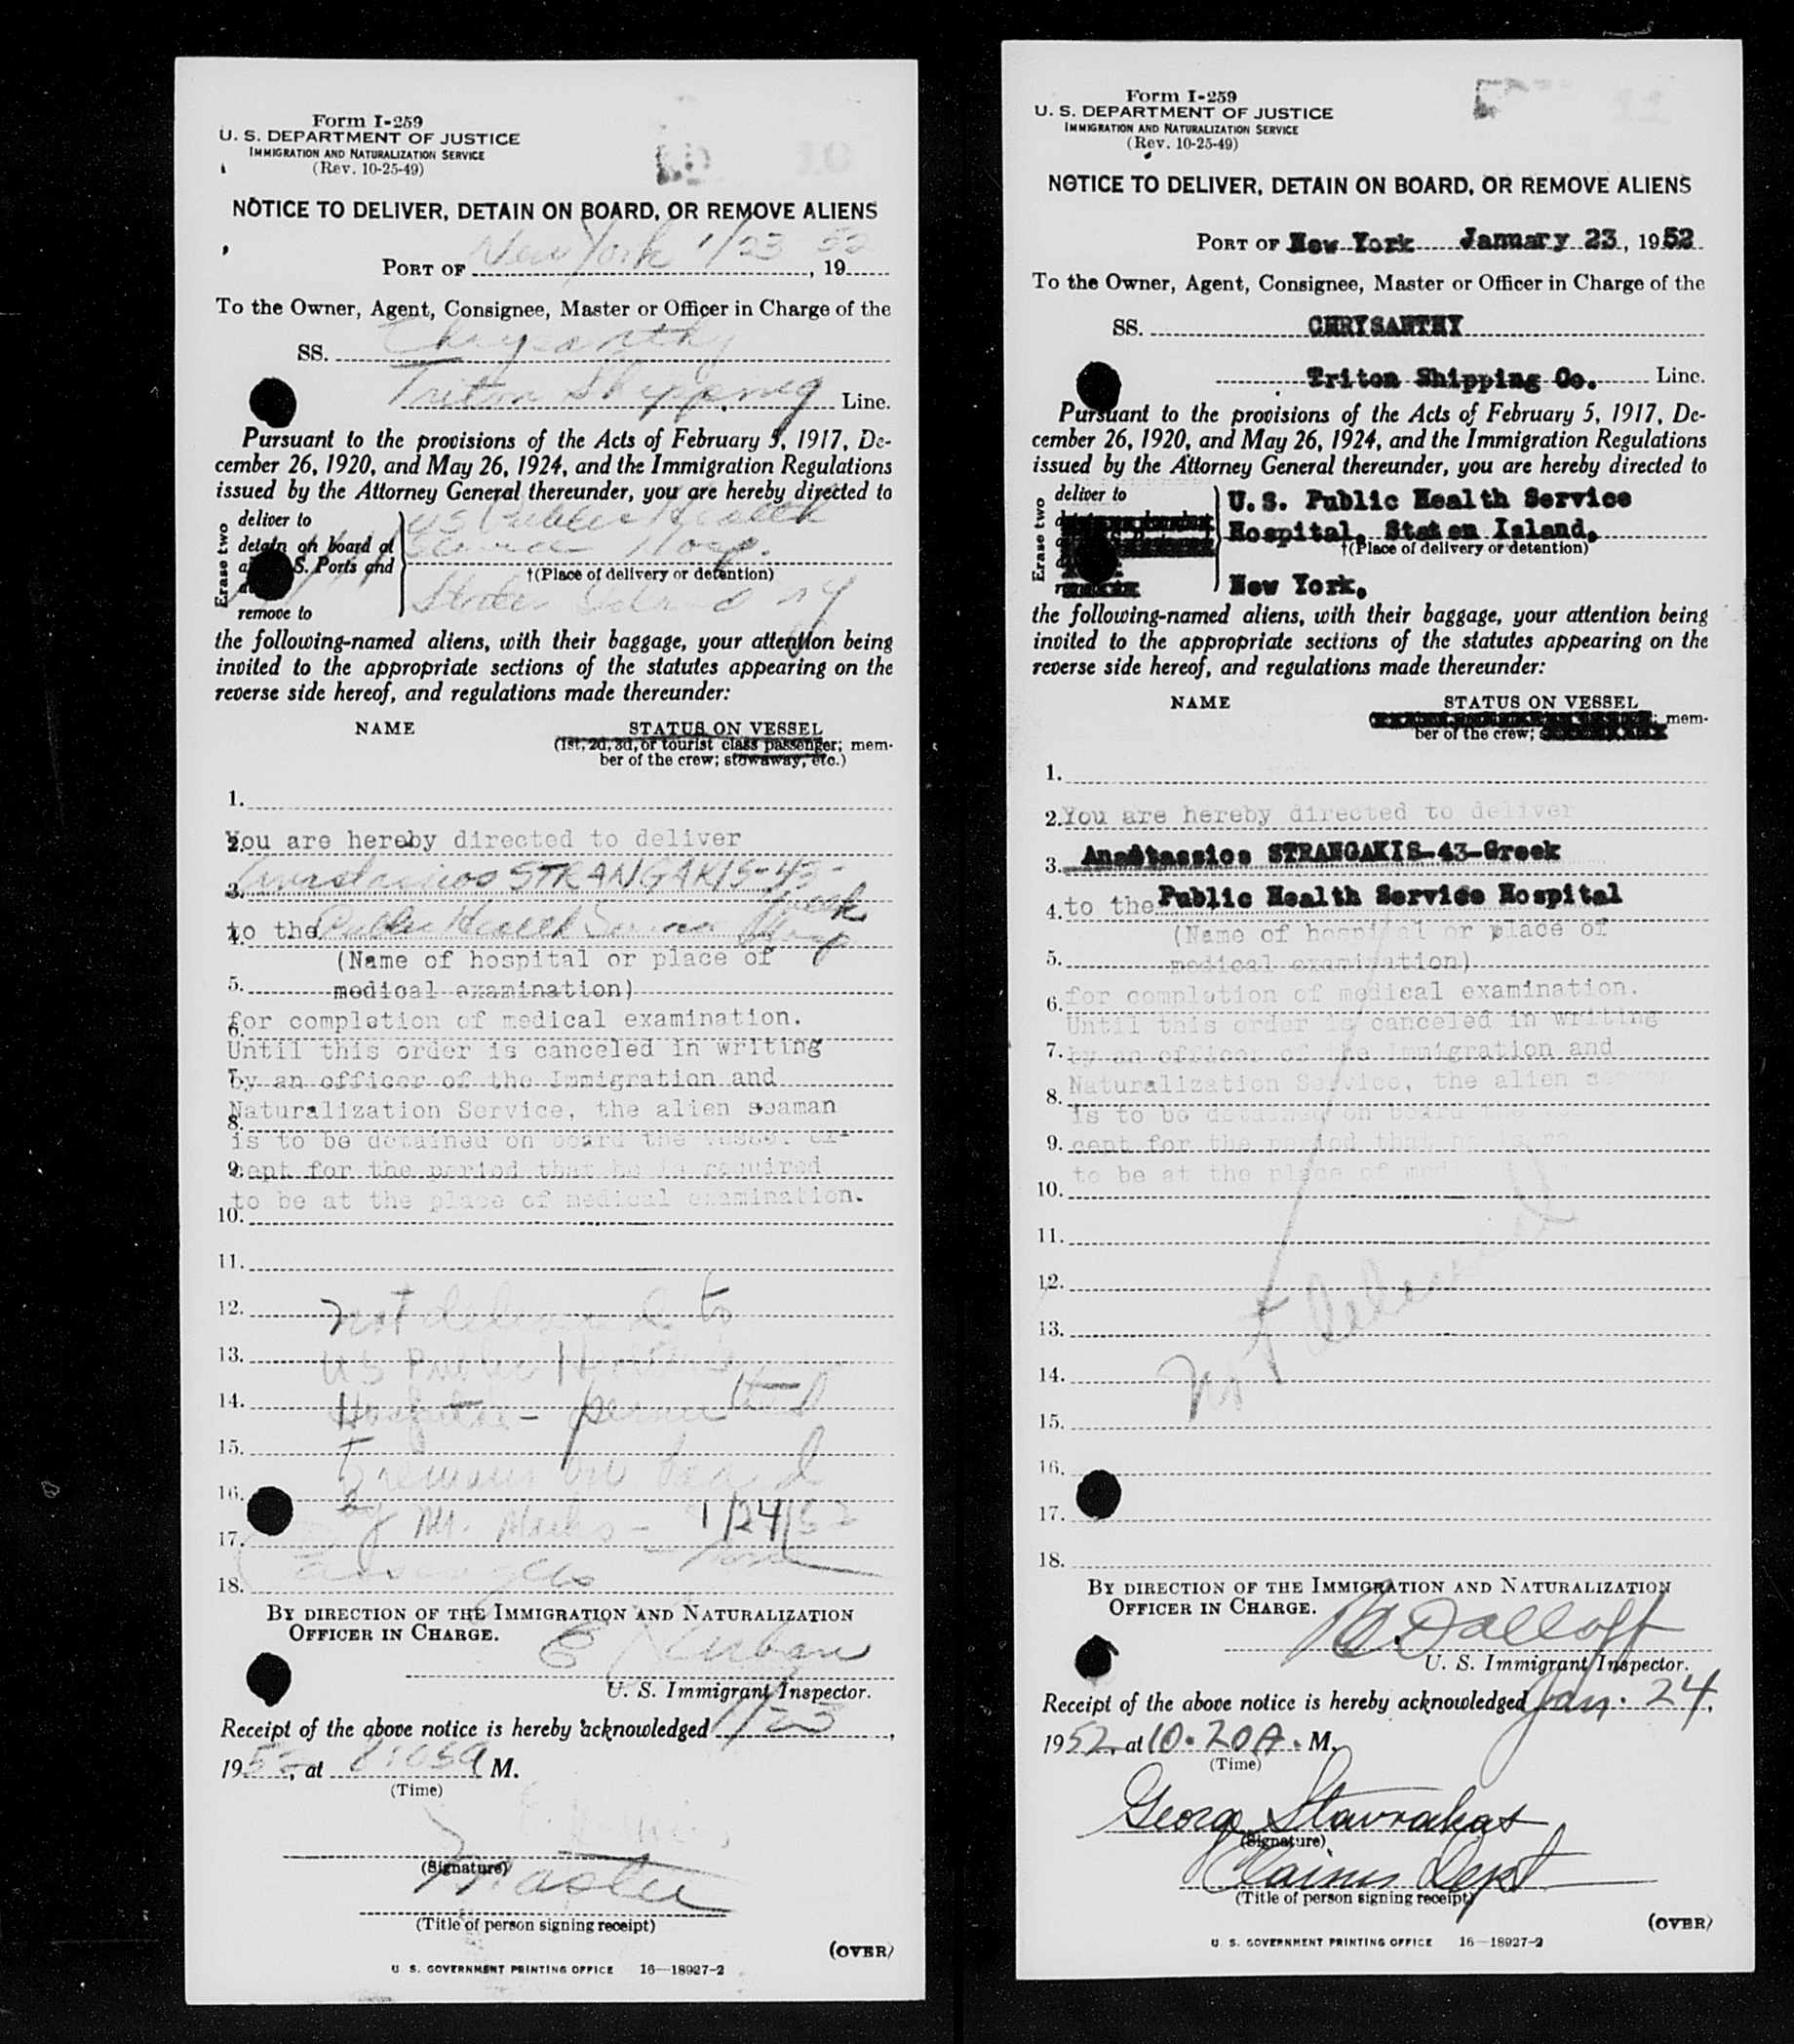 Form I-259
U. S. DEPARTMENT OF JUSTICE
IMMIGRATION AND NATURALIZATION SERVICE
(Rev. 10-25-49)
10
NOTICE TO DELIVER, DETAIN ON BOARD, OR REMOVE ALIENS
PORT OF New York 1/23, 1952
To the Owner, Agent, Consignee, Master or Officer in Charge of the
SS. Chrysanthy
Triton Shipping Line.
Pursuant to the provisions of the Acts of February 5, 1917, De-
cember 26, 1920, and May 26, 1924, and the Immigration Regulations
issued by the Attorney General thereunder, you are hereby directed to
Erase two
deliver to
detain on board at
S. Ports and
remove to
US Public Health
Service Hosp.
†(Place of delivery or detention)
Staten Island NY
the following-named aliens, with their baggage, your attention being
invited to the appropriate sections of the statutes appearing on the
reverse side hereof, and regulations made thereunder:
NAME STATUS ON VESSEL
(1st, 2d, 3d, or tourist class passenger; mem-
ber of the crew; stowaway, etc.)
1.
2. You are hereby directed to deliver
3. Anastasios STRANGAKIS-43-
Greek
4. to the Public Health Service Hosp
(Name of hospital or place of
5. medical examination)
6. for completion of medical examination.
Until this order is canceled in writing
7. by an officer of the Immigration and
8. Naturalization Service, the alien seaman
is to be detained on board the vessel ex-
9. cept for the period that he is required
10. to be at the place of medical examination.
11.
12. not delivered to
13. US Public Health
14. Hospital - permitted
15. to remain on board
16. by Mr. 1/24/52
17.
18.
BY DIRECTION OF THE IMMIGRATION AND NATURALIZATION
OFFICER IN CHARGE.
U. S. Immigrant Inspector.
Receipt of the above notice is hereby acknowledged 1/23,
1952, at M.
(Time)
(Signature)
Master
(Title of person signing receipt)
(OVER)
U. S. GOVERNMENT PRINTING OFFICE 16—18927-2
Form I-259
U. S. DEPARTMENT OF JUSTICE
IMMIGRATION AND NATURALIZATION SERVICE
(Rev. 10-25-49)
11
NOTICE TO DELIVER, DETAIN ON BOARD, OR REMOVE ALIENS
PORT OF New York January 23, 1952
To the Owner, Agent, Consignee, Master or Officer in Charge of the
SS. CHRYSANTHY
Triton Shipping Co. Line.
Pursuant to the provisions of the Acts of February 5, 1917, De-
cember 26, 1920, and May 26, 1924, and the Immigration Regulations
issued by the Attorney General thereunder, you are hereby directed to
Erase two
deliver to
U.S. Public Health Service
Hospital, Staten Island,
†(Place of delivery or detention)
New York.
the following-named aliens, with their baggage, your attention being
invited to the appropriate sections of the statutes appearing on the
reverse side hereof, and regulations made thereunder:
NAME STATUS ON VESSEL
mem-
ber of the crew;
1.
2. You are hereby directed to deliver
3. Anastassios STRANGAKIS-43-Greek
4. to the Public Health Service Hospital
(Name of hospital or place of
5. medical examination)
6. for completion of medical examination.
Until this order is canceled in writing
7. by an officer of the Immigration and
8. Naturalization Service, the alien
is to be detained on board the
9. cept for the period that he is
10. to be at the place of med
11.
12.
13. Not Delivered
14.
15.
16.
17.
18.
BY DIRECTION OF THE IMMIGRATION AND NATURALIZATION
OFFICER IN CHARGE.
U. S. Immigrant Inspector.
Receipt of the above notice is hereby acknowledged Jan. 24,
1952, at 10.20 A. M.
(Time)
Georg Stavrakas
(Signature)
Claims Dept
(Title of person signing receipt)
(OVER)
U. S. GOVERNMENT PRINTING OFFICE 16—18927-2